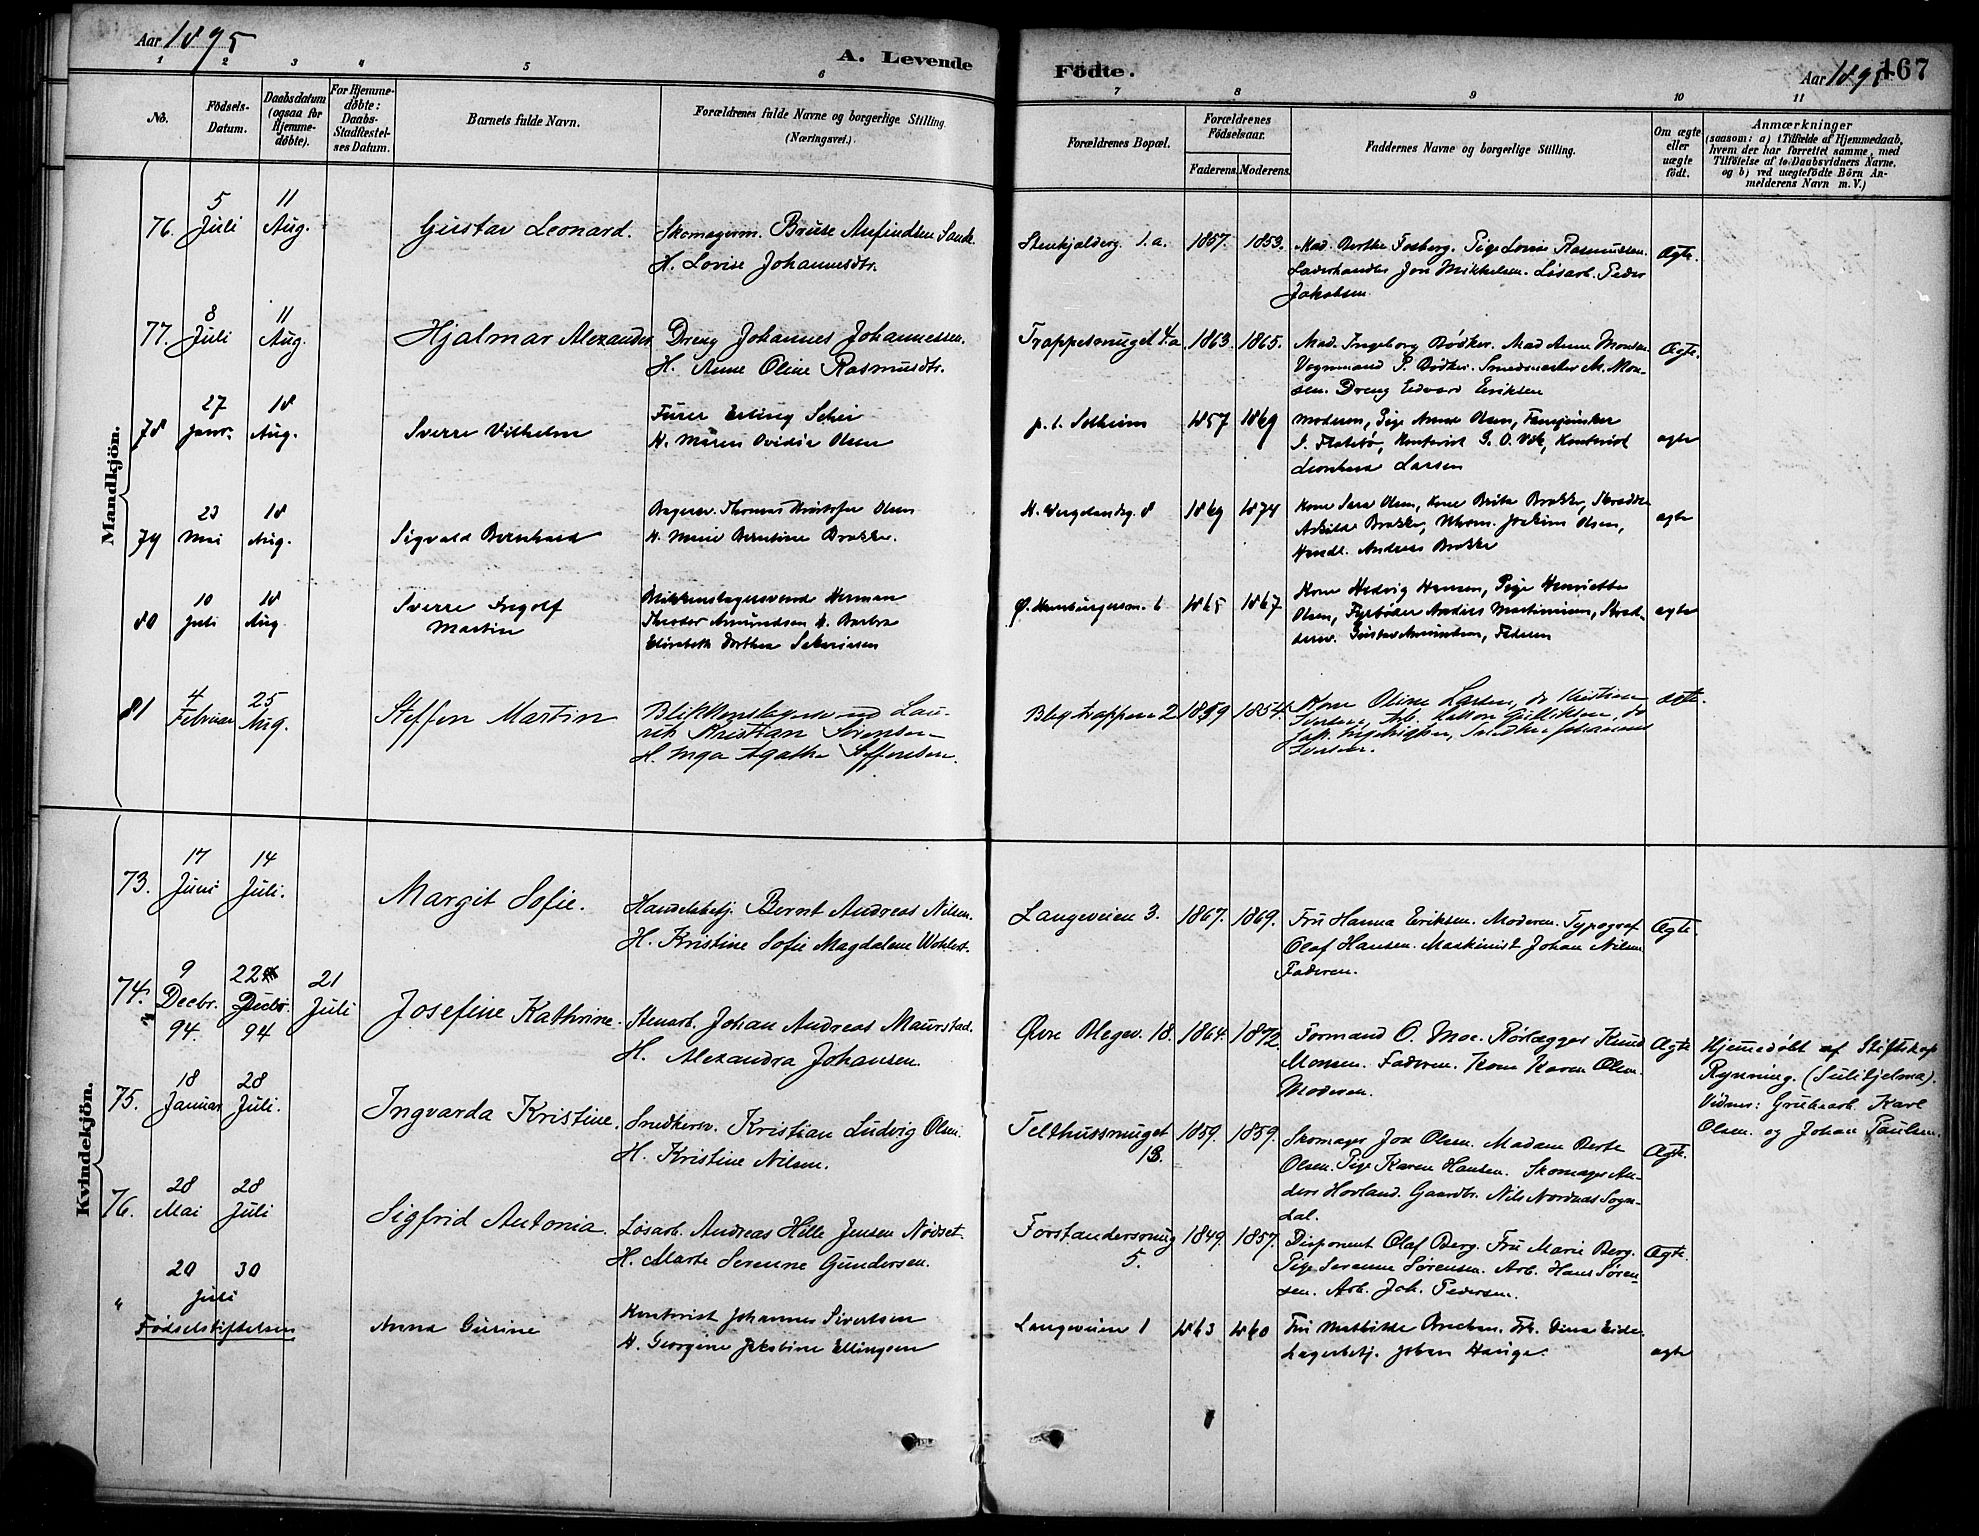 Aar 1895
A. Levende Födte.
Aar 1895
167
1 2 3 4 5 6 7 8 9 10 11
No.
Födsels-Datum.
Daabsdatum (ogsaa for Hjemme-döbte).
For Hjemme-döbte: Daabs-Stadfæstelses Datum.
Barnets fulde Navn.
Forældrenes fulde Navne og borgerlige Stilling. (Næringsvei.)
Forældrenes Bopæl.
Forældrenes Födselsaar.
Faderens. Moderens.
Faddernes Navne og borgerlige Stilling.
Om ægte eller uægte födt.
Anmærkninger
(saasom: a) i Tilfælde af Hjemmedaab, hvem der har forrettet samme, med Tilföielse af to Daabsvidners Navne, og b) ved uægtefödte Börn Anmelderens Navn m. V.)
Mandkjön.
76. 5 Juli 11 Aug. Gustav Leonard.
Skomagerm. Bruse Anfindsen Sande
H. Lovise Johannesdtr.
Stenkjelderg. 1.a. 1857. 1853.
Mad. Berthe Fosberg. Pige Lovise Rasmussen.
Læderhandler Jon Mikkelsen. Løsarb. Peder
Jakobsen
Ægte.
77. 8 Juli 11 Aug. Hjalmar Alexander
Dreng Johannes Johannessen.
H. Anne Oline Rasmusdtr.
Trappesmuget 4.a 1863 1865.
Mad. Ingeborg Bødker. Mad Anne Monsen
Vognmand P. Bødker. Smedmester M. Mon-
sen. Dreng Edvard Eriksen
Ægte.
78 27 Janr. 18 Aug. Sverre Vilhelm
Furer Erling Schei
H. Maren Ovidia Olsen
p. t. Solheim 1857 1869
Moderen, Pige Anna Olsen,
J. Flatebø, Kontorist G. O. Vik, Kontorist
Leonhard Larsen
ægte
79 23 Mai 18 Aug. Sigvald Bernhard
Bagersv. Thomas Kristofer Olsen
H. Marie Berntine Brakke.
H. Wergelandsg. 8 1869 1874
Kone Sara Olsen, Kone Brita Brakke, Skrædder
Askilde Brakke, Joakim Olsen,
Handl. Andreas Brakke
ægte
80 10 Juli 18 Aug. Sverre Ingolf
Martin
Blikkenslagersvend Herman
Theodor Amundsen H. Barbra
Elisabeth Dorthea Sakariasen
Ø. Hamburgersm. 6 1865 1867
Kone Hedvig Hansen, Pige Henriette
Olsen, Fyrbøder Anders Martinusen, Skræd-
dersv. Gustav Amundsen, Faderen
ægte
81 4 Februar 25 Aug. Steffen Martin
Blikkenslagersvend Lau-
rits Kristian Sørensen
H. Inga Agathe Steffensen.
Blegtrappene 2 1859 1854.
Kone Oline Larsen, do Kristiane
Iversen, Arb. Gulliksen, do
Jak. Ingebrigtsen, Johannes
Iversen.
ægte.
Kvindekjön.
73. 17 Juni 14 Juli. Margit Sofie.
Handelsbetj. Bernt Andreas Nilsen.
H. Kristine Sofie Magdalene Wohlert.
Langeveien 3. 1867. 1869.
Fru Hanna Eriksen. Moderen. Typograf
Olaf Hansen. Maskinist Johan Nilsen
Faderen.
Ægte.
74. 9 Decbr. 94. 22 Decbr. 94 21 Juli Josefine Kathrine.
Stenarb. Johan Andreas Maurstad.
H. Alexandra Johansen.
Øvre Blegev. 18. 1864. 1872
Formand O. Moe. Rørlægger Knud
Monsen. Faderen. Kone Karen Olsen.
Moderen.
Ægte
Hjemmedøbt af Stiftskap.
Rynning. (Sulitjelma).
Vidner: Grubearb. Karl
Olsen og Johan Paulsen.
75. 18 Januar 28 Juli. Ingvarda Kristine.
Snedkersv. Kristian Ludvig Olsen.
H. Kristine Nilsen.
Telthussmuget 13. 1859. 1859.
Skomager Jon Olsen. Madam Berte
Olsen. Pige Karen Hansen. Skomager An-
ders Hovland. Gaardbr. Nils Nordnæs Sogn-
dal.
Ægte.
76. 28 Mai 28 Juli Sigfrid Antonia.
Løsarb. Andreas Hille Jensen Nødset.
H. Marte Serenne Gundersen.
Forstandersmug 5. 1849. 1857.
Disponent Olaf Berg. Fru Marie Berg.
Pige Serenne Sørensen. Arb. Hans Søren-
sen. Arb. Joh. Pedersen.
Ægte.
" 20 30 Juli
Fødselsstiftelsen
Anna Gurine
Kontorist Johannes Sivertsen
H. Georgine Jakobine Ellingsen
Langeveien 1 1863 1860
Fru Mathilde. Frk. Dina Eide.
Lagerbetj. Johan Hauge.
ægte